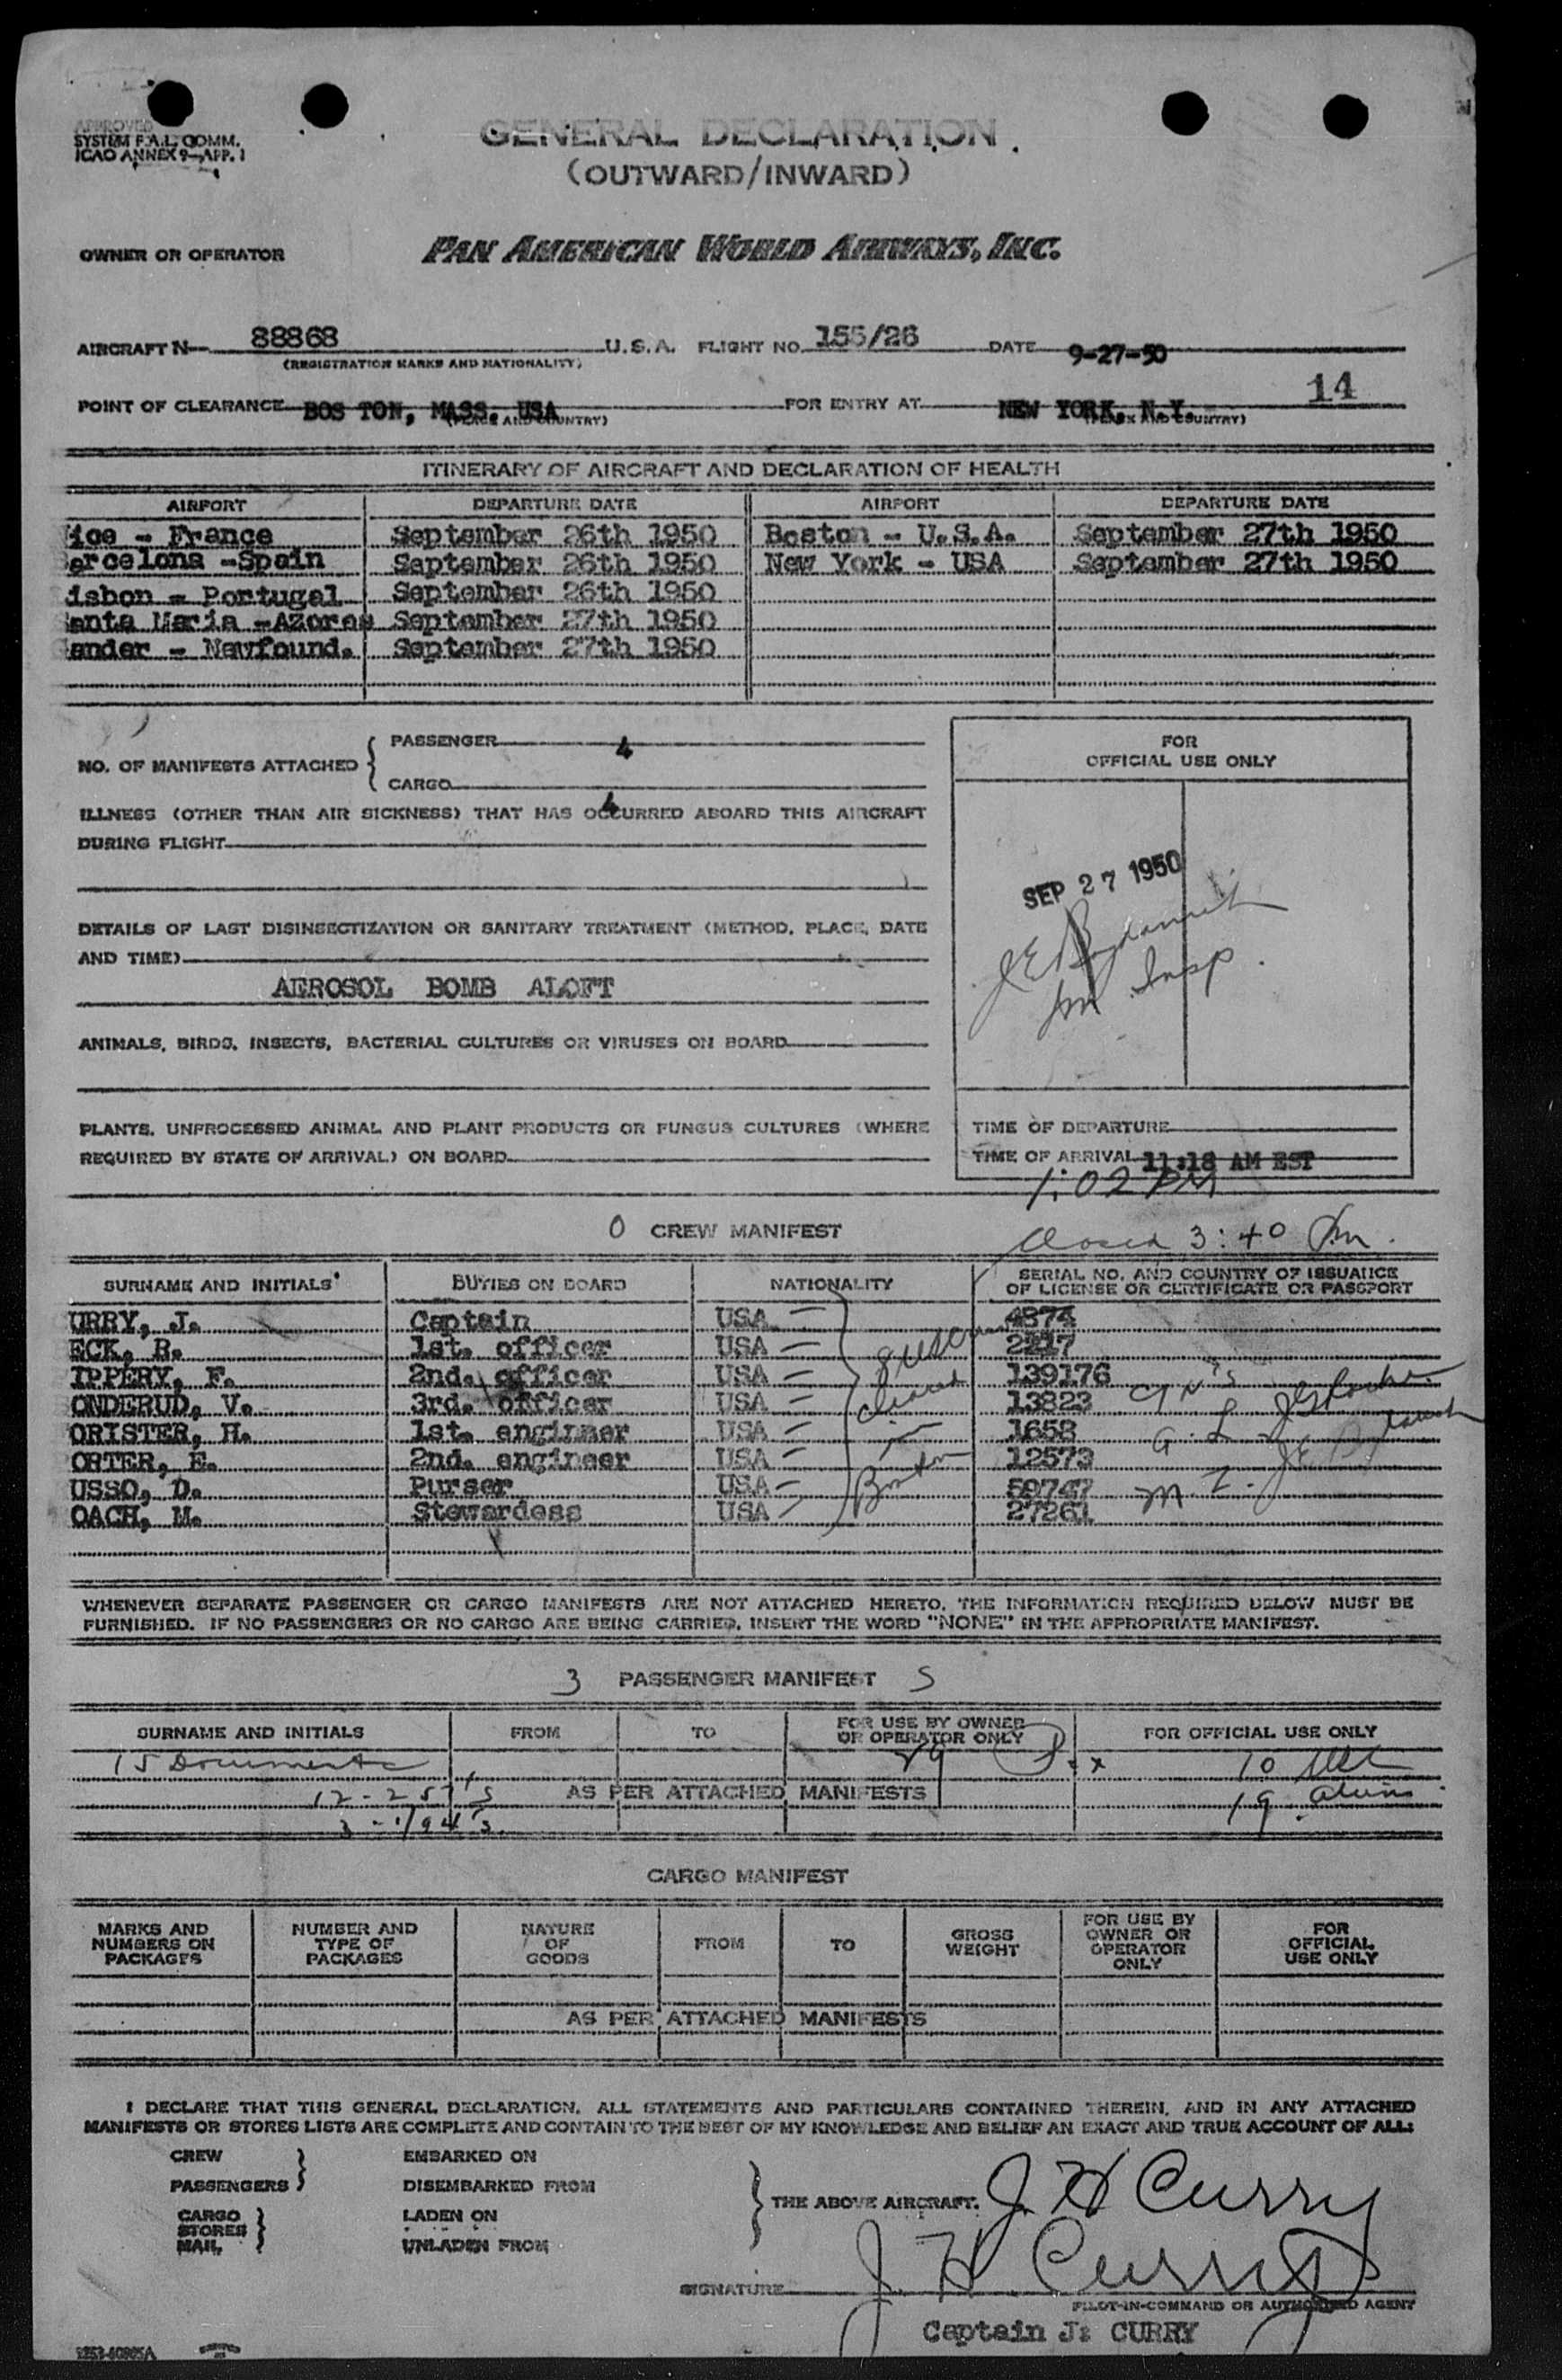 APPROVED
SYSTEM F.A.L. COMM.
ICAO ANNEX 9-APP. 1
GENERAL DECLARATION
(OUTWARD/INWARD)
OWNER OR OPERATOR PAN AMERICAN WORLD AIRWAYS, INC.
AIRCRAFT N- 88868 U.S.A. FLIGHT NO. 155/26 DATE 9-27-50
(REGISTRATION MARKS AND NATIONALITY)
14
POINT OF CLEARANCE BOS TON, MASS. USA FOR ENTRY AT NEW YORK, N.Y.
(PLACE AND COUNTRY) (PLACE AND COUNTRY)
ITINERARY OF AIRCRAFT AND DECLARATION OF HEALTH
AIRPORT DEPARTURE DATE AIRPORT DEPARTURE DATE
ice - France September 26th 1950 Boston - U.S.A. September 27th 1950
arcelona -Spain September 26th 1950 New York - USA September 27th 1950
isbon - Portugal September 26th 1950
anta Maria -Azores September 27th 1950
ander - Newfound. September 27th 1950
NO. OF MANIFESTS ATTACHED { PASSENGER 4
CARGO 4
FOR
OFFICIAL USE ONLY
ILLNESS (OTHER THAN AIR SICKNESS) THAT HAS OCCURRED ABOARD THIS AIRCRAFT
DURING FLIGHT
SEP 27 1950
Im Insp.
DETAILS OF LAST DISINSECTIZATION OR SANITARY TREATMENT (METHOD, PLACE, DATE
AND TIME)
AEROSOL BOMB ALOFT
ANIMALS, BIRDS, INSECTS, BACTERIAL CULTURES OR VIRUSES ON BOARD
PLANTS, UNPROCESSED ANIMAL AND PLANT PRODUCTS OR FUNGUS CULTURES (WHERE
REQUIRED BY STATE OF ARRIVAL) ON BOARD
TIME OF DEPARTURE
TIME OF ARRIVAL 11:18 AM EST
1:02 PM
0 CREW MANIFEST
Closed 3:40 Pm.
SURNAME AND INITIALS DUTIES ON BOARD NATIONALITY SERIAL NO. AND COUNTRY OF ISSUANCE
OF LICENSE OR CERTIFICATE OR PASSPORT
URRY, J. Captain USA 4874
ECK, R. 1st. officer USA 2217
IPPERY, F. 2nd. officer USA 139176
ONDERUD, V. 3rd. officer USA 13823
ORISTER, H. 1st. engineer USA 1658
ORTER, E. 2nd. engineer USA 12573
USSO, D. Purser USA 59747
OACH, M. Stewardess USA 27261
cleared
Boston
WHENEVER SEPARATE PASSENGER OR CARGO MANIFESTS ARE NOT ATTACHED HERETO, THE INFORMATION REQUIRED BELOW MUST BE
FURNISHED. IF NO PASSENGERS OR NO CARGO ARE BEING CARRIED, INSERT THE WORD "NONE" IN THE APPROPRIATE MANIFEST.
3 PASSENGER MANIFEST S
SURNAME AND INITIALS FROM TO FOR USE BY OWNER
OR OPERATOR ONLY FOR OFFICIAL USE ONLY
15 Documents 29 10
12-257's AS PER ATTACHED MANIFESTS 19 aliens
3-
CARGO MANIFEST
MARKS AND
NUMBERS ON
PACKAGES
NUMBER AND
TYPE OF
PACKAGES
NATURE
OF
GOODS
FROM
TO
GROSS
WEIGHT
FOR USE BY
OWNER OR
OPERATOR
ONLY
FOR
OFFICIAL
USE ONLY
AS PER ATTACHED MANIFESTS
I DECLARE THAT THIS GENERAL DECLARATION, ALL STATEMENTS AND PARTICULARS CONTAINED THEREIN, AND IN ANY ATTACHED
MANIFESTS OR STORES LISTS ARE COMPLETE AND CONTAIN TO THE BEST OF MY KNOWLEDGE AND BELIEF AN EXACT AND TRUE ACCOUNT OF ALL:
CREW EMBARKED ON
PASSENGERS } DISEMBARKED FROM
} THE ABOVE AIRCRAFT. J H Curry
CARGO LADEN ON
STORES }
MAIL UNLADEN FROM
SIGNATURE J. H. Curry
PILOT-IN-COMMAND OR AUTHORIZED AGENT
Captain J: CURRY